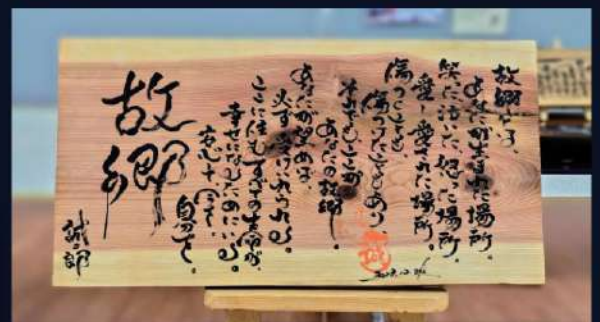 故郷とは
あなたが生まれた場所。
笑い泣いた、怒った場所。
愛し愛された場所。
傷つくときも、
傷つけたときもあり、
それでもここが
あなたの故郷。
あなたが望めば
必ず受け入れられる。
ここに住むすべての生命が、
幸せになるためにいる。
安心
自分で。
故郷
誠二郎